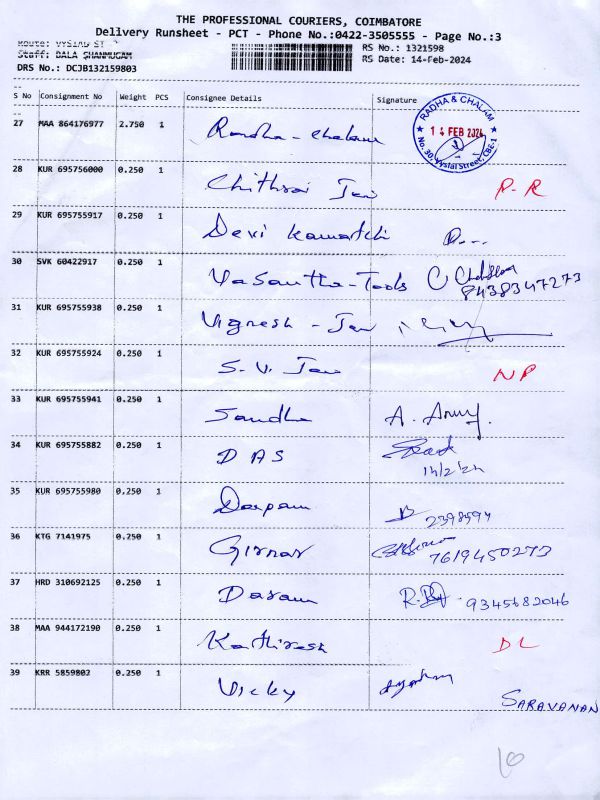 THE PROFESSIONAL COURIERS, COIMBATORE
Delivery Runsheet - PCT - Phone No.:0422-3505555 - Page No.:3
Route: VYSIAL ST
Staff: BALA SHANMUGAM
RS No.: 1321598
DRS No.: DCJB132159803
RS Date: 14-Feb-2024
S No Consignment No Weight PCS Consignee Details Signature
27 MAA 864176977 2.750 1 Radha - Chalam
RADHA & CHALAM
14 FEB 2024
No. 30, Vysial Street, CBE-1
28 KUR 695756000 0.250 1 Chithrai Jew P-R
29 KUR 695755917 0.250 1 Devi Kamatchi
30 SVK 60422917 0.250 1 Vasantha-Tools 8438347273
31 KUR 695755938 0.250 1 Vignesh - Jew
32 KUR 695755924 0.250 1 S. V. Jew NP
33 KUR 695755941 0.250 1 Sandha A. Arny.
34 KUR 695755882 0.250 1 DAS
14/2/24
35 KUR 695755980 0.250 1 Darpam 2398594
36 KTG 7141975 0.250 1 Girnar 7619450273
37 HRD 310692125 0.250 1 Daram 9345682046
38 MAA 944172190 0.250 1 Kathiresh DL
39 KRR 5859802 0.250 1 Vicky
SARAVANAN
10